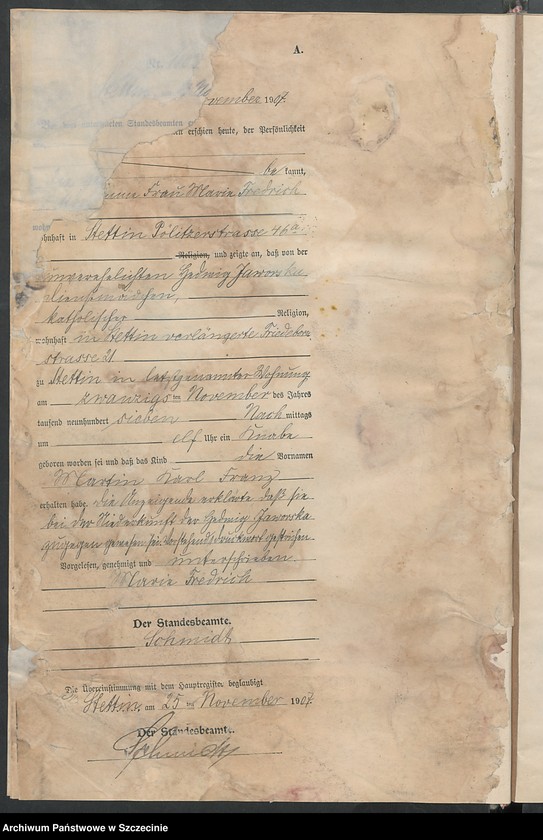 A.
Nr.
vember 1907.
Standesbeamten
en erschien heute, der Persönlichkeit
be kannt,
Frau Marie Fredrich
ohnhaft in Stettin Pölitzerstrasse 46a
Religion, und zeigte an, daß von der
unverehelichten Hedwig Jaworska
Dienstmädchen,
katholischer Religion,
wohnhaft in Stettin verlängerte Friedeborn
strasse 21
zu Stettin in letztgenannter Wohnung
am zwanzigs ten November des Jahres
tausend neunhundert sieben Nach mittags
um elf Uhr ein Knabe
geboren worden sei und daß das Kind die Vornamen
Martin Karl Franz
erhalten habe. Die Anzeigende erklärte daß sie
bei der Niederkunft der Hedwig Jaworska
zugegen gewesen sei. Vorstehend Druckwort gestrichen.
Vorgelesen, genehmigt und unterschrieben
Marie Fredrich
Der Standesbeamte.
Schmidt
Die Übereinstimmung mit dem Hauptregister beglaubigt
Stettin, am 25 ten November 1907.
Der Standesbeamte.
Schmidt
Archiwum Państwowe w Szczecinie